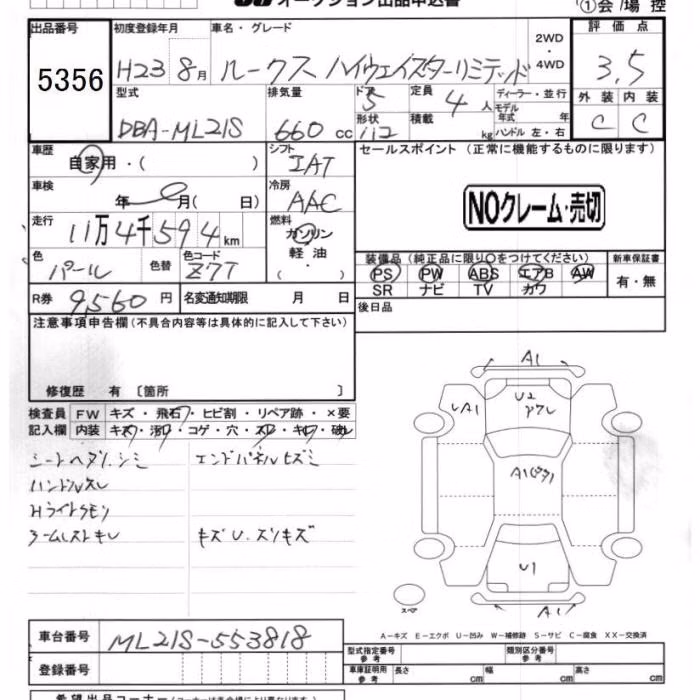 オークション出品申込書
①会/場 控
出品番号 初度登録年月 車名・グレード 2WD・4WD 評価点
5356 H23 8月 ルークス ハイウェイスターリミテッド 3.5
型式 排気量 ドア 定員 ディーラー・並行 外装 内装
5 4人 モデル年式 年
DBA-ML21S 660cc 形状 積載 kg ハンドル 左・右 C C
112
車歴 シフト セールスポイント (正常に機能するものに限ります)
自家用・( ) IAT
車検 年 月( 日) 冷房 AAC NOクレーム・売切
走行 11万4千594km 燃料
ガソリン
軽油
色 色替 色コード 装備品 (純正品に限り○をつけてください) 新車保証書
パール Z7T PS PW ABS エアB AW 有・無
SR ナビ TV カワ
R券 9,560円 名変通知期限 月 日 後日品
注意事項申告欄 (不具合内容等は具体的に記入して下さい)
修復歴 有 〔箇所 〕
検査員 FW キズ・飛石・ヒビ割・リペア跡・×要
記入欄 内装 キズ・汚レ・コゲ・穴・スレ・キレ・破レ
シートヘタリ、シミ エンドパネルヒズミ
ハンドルスレ
Hライトクモリ
アームレストキレ キズU.スリキズ
A1
U2
アレ
A1
U1
A1
スペア
A-キズ E-エクボ U-凹み W-補修跡 S-サビ C-腐食 XX-交換済
車台番号 ML21S-553818
型式指定番号 参考 類別区分番号 参考
登録番号 車庫証明用 参考 長さ cm 幅 cm 高さ cm
希望出品コーナー